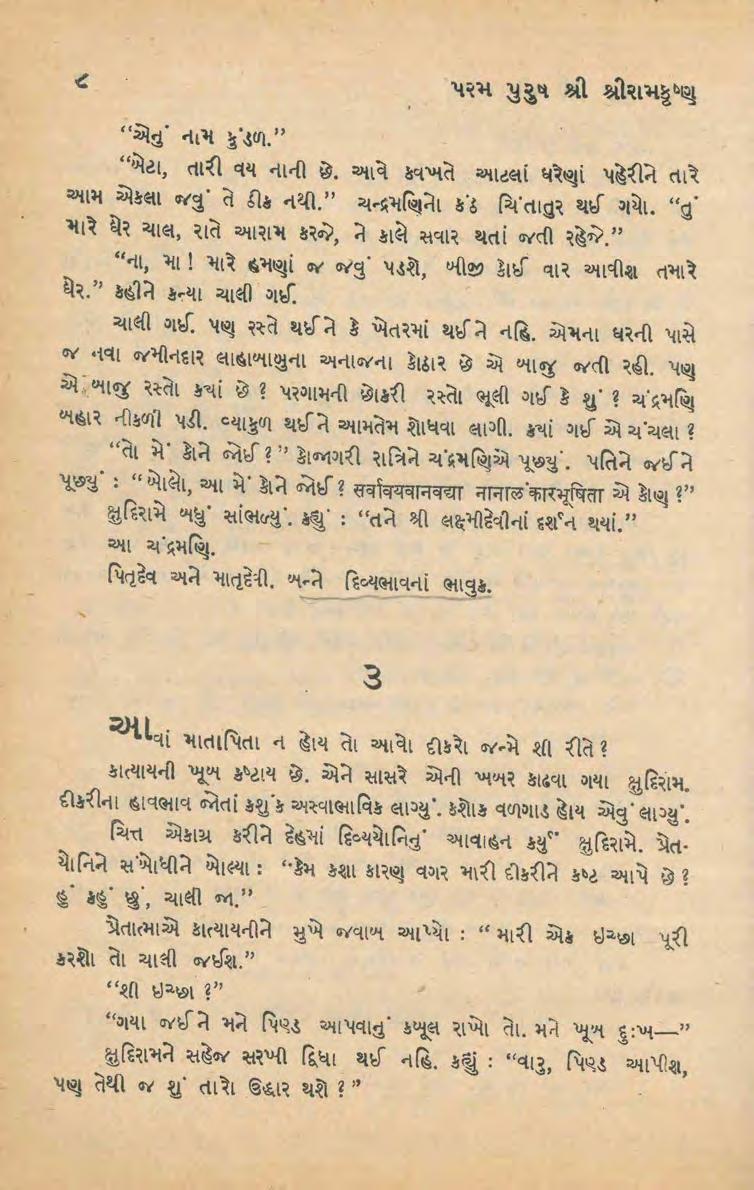 ૮
પરમ પુરુષ શ્રી શ્રીરામકૃષ્ણ
“એનું નામ કુંડળ.”
“બેટા, તારી વય નાની છે. આવે કવખતે આટલાં ઘરેણાં પહેરીને તારે
આમ એકલા જવું તે ઠીક નથી.” ચન્દ્રમણિનો કંઠ ચિંતાતુર થઈ ગયો. “તું
મારે ઘેર ચાલ, રાતે આરામ કરજે, ને કાલે સવાર થતાં જતી રહેજે.”
“ના, મા! મારે હમણાં જ જવું પડશે, બીજી કોઈ વાર આવીશ તમારે
ઘેર.” કહીને કન્યા ચાલી ગઈ.
ચાલી ગઈ. પણ રસ્તે થઈને કે ખેતરમાં થઈને નહિ. એમના ઘરની પાસે
જ નવા જમીનદાર લાહાબાબુના અનાજના કોઠાર છે એ બાજુ જતી રહી. પણ
એ બાજુ રસ્તો ક્યાં છે? પરગામની છોકરી રસ્તો ભૂલી ગઈ કે શું? ચંદ્રમણિ
બહાર નીકળી પડી. વ્યાકુળ થઈને આમતેમ શોધવા લાગી. ક્યાં ગઈ એ ચંચલા?
“તો મેં કોને જોઈ?” કોજાગરી રાત્રિને ચંદ્રમણિએ પૂછ્યું. પતિને જઈને
પૂછ્યું : “બોલો, આ મેં કોને જોઈ? सर्वावयवानवद्या नानालंकारभूषिता એ કોણ?”
ક્ષુદિરામે બધું સાંભળ્યું. કહ્યું : “તને શ્રી લક્ષ્મીદેવીનાં દર્શન થયાં.”
આ ચંદ્રમણિ.
પિતૃદેવ અને માતૃદેવી. બન્ને દિવ્યભાવનાં ભાવુક.
૩
આવાં માતાપિતા ન હોય તો આવો દીકરો જન્મે શી રીતે?
કાત્યાયની ખૂબ કષ્ટાય છે. એને સાસરે એની ખબર કાઢવા ગયા ક્ષુદિરામ.
દીકરીના હાવભાવ જોતાં કશુંક અસ્વાભાવિક લાગ્યું. કશોક વળગાડ હોય એવું લાગ્યું.
ચિત્ત એકાગ્ર કરીને દેહમાં દિવ્યયોનિનું આવાહન કર્યું ક્ષુદિરામે. પ્રેત-
યોનિને સંબોધીને બોલ્યા : “કેમ કશા કારણ વગર મારી દીકરીને કષ્ટ આપે છે?
હું કહું છું, ચાલી જા.”
પ્રેતાત્માએ કાત્યાયનીને મુખે જવાબ આપ્યો : “મારી એક ઇચ્છા પૂરી
કરશો તો ચાલી જઈશ.”
“શી ઇચ્છા?”
“ગયા જઈને મને પિણ્ડ આપવાનું કબૂલ રાખો તો. મને ખૂબ દુઃખ—”
ક્ષુદિરામને સહેજ સરખી દ્વિધા થઈ નહિ. કહ્યું : “વારુ, પિણ્ડ આપીશ,
પણ તેથી જ શું તારો ઉદ્ધાર થશે?”